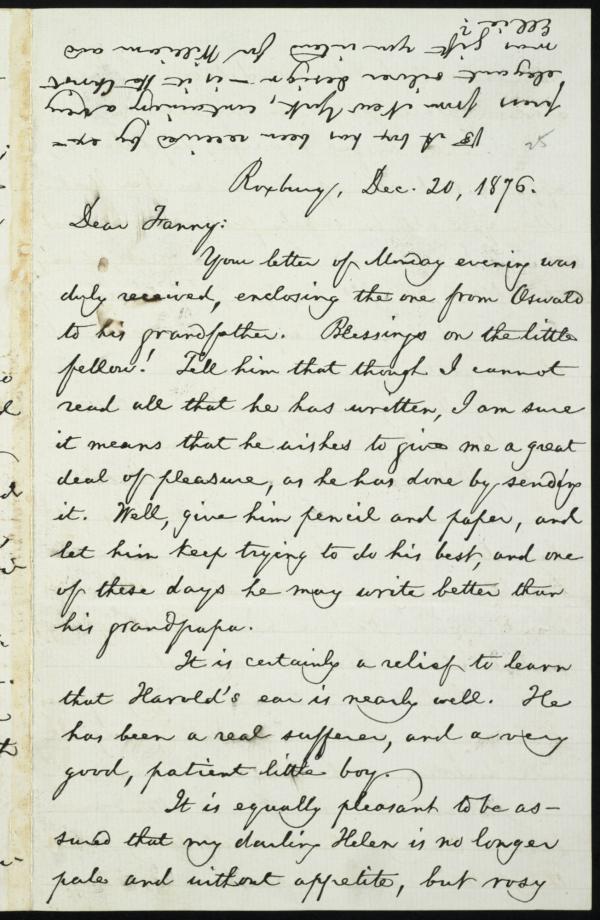 Roxbury, Dec. 20, 1876.
Dear Fanny:
Your letter of Monday evening was
duly received, enclosing the one from Oswald
to his grandfather. Blessings on the little
fellow! Tell him that though I cannot
read all that he has written, I am sure
it means that he wishes to give me a great
deal of pleasure, as he has done by sending
it. Well, give him pencil and paper, and
let him keep trying to do his best, and one
of these days he may write better than
his grandpapa.
It is certainly a relief to learn
that Harold's ear is nearly well. He
has been a real sufferer, and a very
good, patient little boy.
It is equally pleasant to be as-
sured that my darling Helen is no longer
pale and without appetite, but rosy
PS A box has been received by ex-
press from New York, containing a very
elegant silver design — is it the Christ
mas gift you intend for William and
Ellie?
25